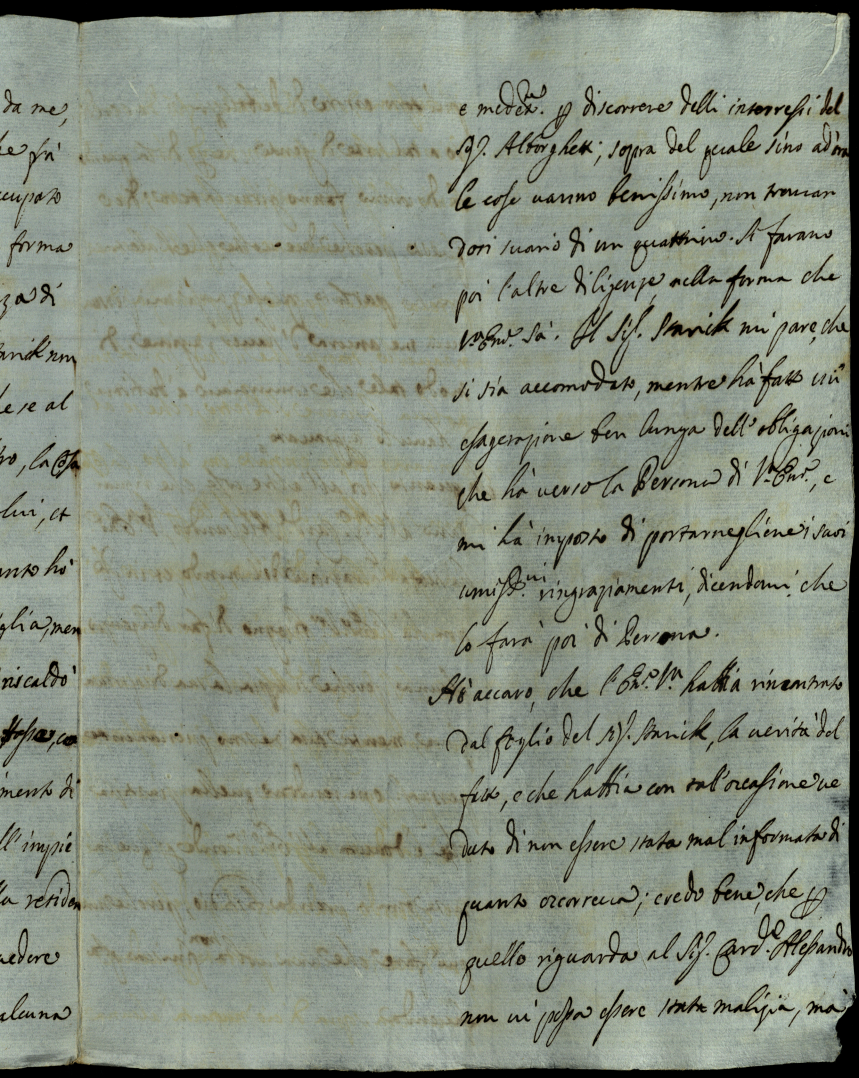 da me,
he fù
cupato
forma
za di
arick non
lese al
ro, la Cosa
lui, et
anto hò
glia, men
riscaldò
stessa, co
mento di
ll'impie
la residen
vedere
alcuna
e medem.e p discorrere delli interressi del
Sig.r Alborghetti; sopra del quale sino ad'ora
le cose vanno benissimo, non trovan
dosi svario di un quattrino. Si farano
poi l'altre diligenze nella forma che
V.ra Em.a sà. Il Sig.r Starick mi pare, che
si sia accomodato, mentre hà fatto un'
esagerazione ben lunga dell'obligazioni
che hà verso la Persona di V.ra Em.a, e
mi hà imposto di portarnegliene i suoi
umiliss.mi ringraziamenti, dicendomi, che
lo farà poi di Persona.
Hò accaro, che l'Em.a V.ra habbia rincontrato
dal foglio del Sig.r Starick, la verità del
fatto, e che habbia con tal'occasione ve
duto di non essere stata mal informata di
quanto occorreva; credo bene, che p
quello riguarda al Sig.r Card.le Alessandro
non vi possa essere stata malizia, mà